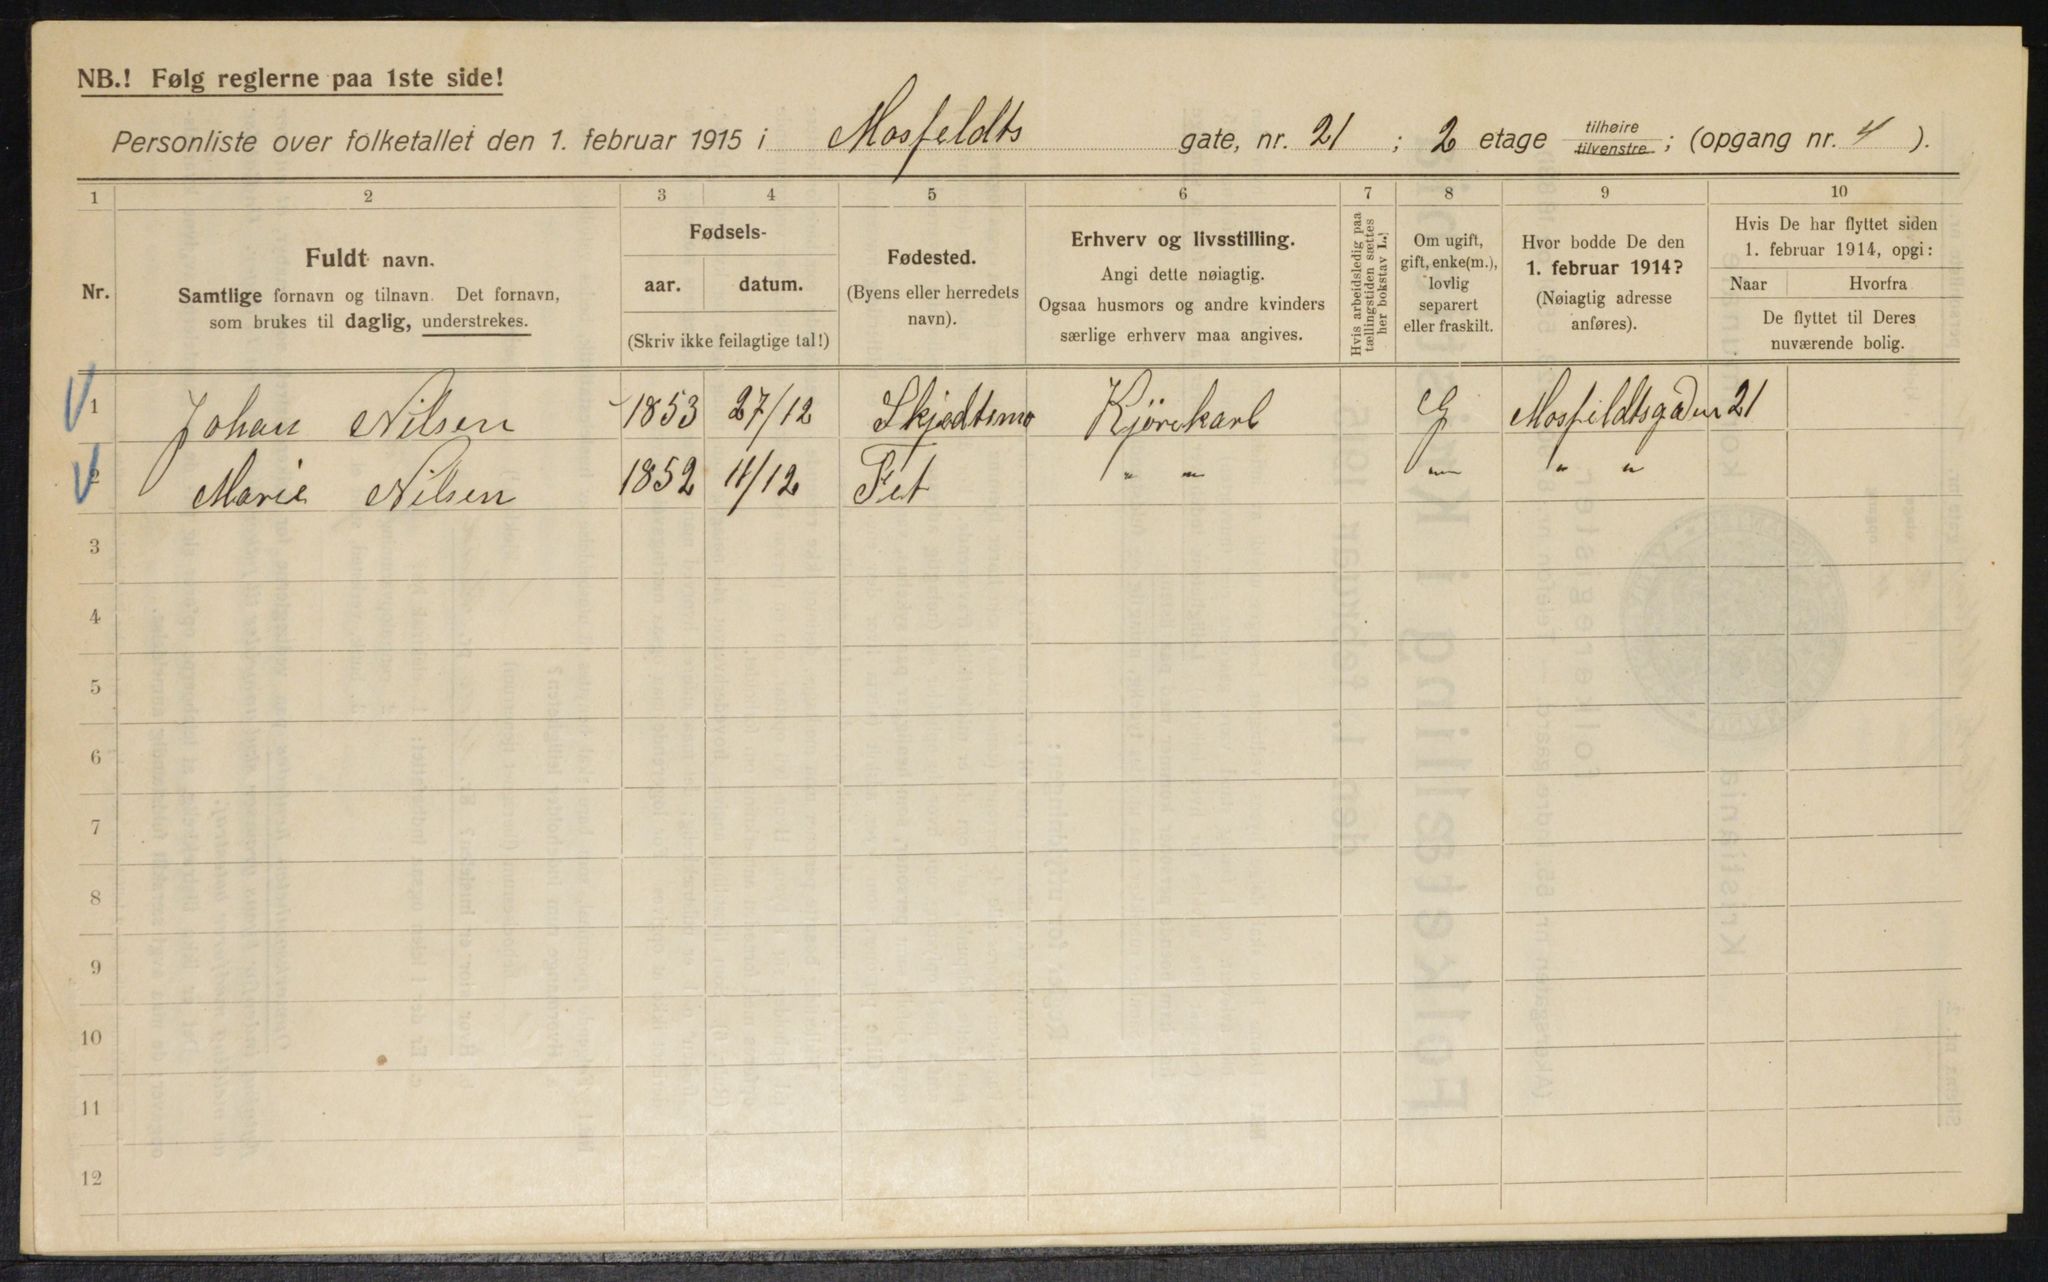 NB.! Følg reglerne paa 1ste side!
Personliste over folketallet den 1. februar 1915 i Mosfeldts gate, nr. 21 ; 2 etage tilhøire tilvenstre ; (opgang nr. 4 ).
1 2 3 4 5 6 7 8 9 10
Nr.
Fuldt navn.
Samtlige fornavn og tilnavn. Det fornavn,
som brukes til daglig, understrekes.
Fødsels-
aar. datum.
(Skriv ikke feilagtige tal!)
Fødested.
(Byens eller herredets
navn).
Erhverv og livsstilling.
Angi dette nøiagtig.
Ogsaa husmors og andre kvinders
særlige erhverv maa angives.
Hvis arbeidsledig paa
tællingstiden sættes
her bokstav L.
Om ugift,
gift, enke(m.),
lovlig
separert
eller fraskilt.
Hvor bodde De den
1. februar 1914?
(Nøiagtig adresse
anføres).
Hvis De har flyttet siden
1. februar 1914, opgi:
Naar Hvorfra
De flyttet til Deres
nuværende bolig.
1 Johan Nilsen 1853 27/12 Skjedtsmo Kjörekarl G Mosfeldtsgaden 21
2 Marie Nilsen 1852 11/12 Fet " " " " "
3
4
5
6
7
8
9
10
11
12